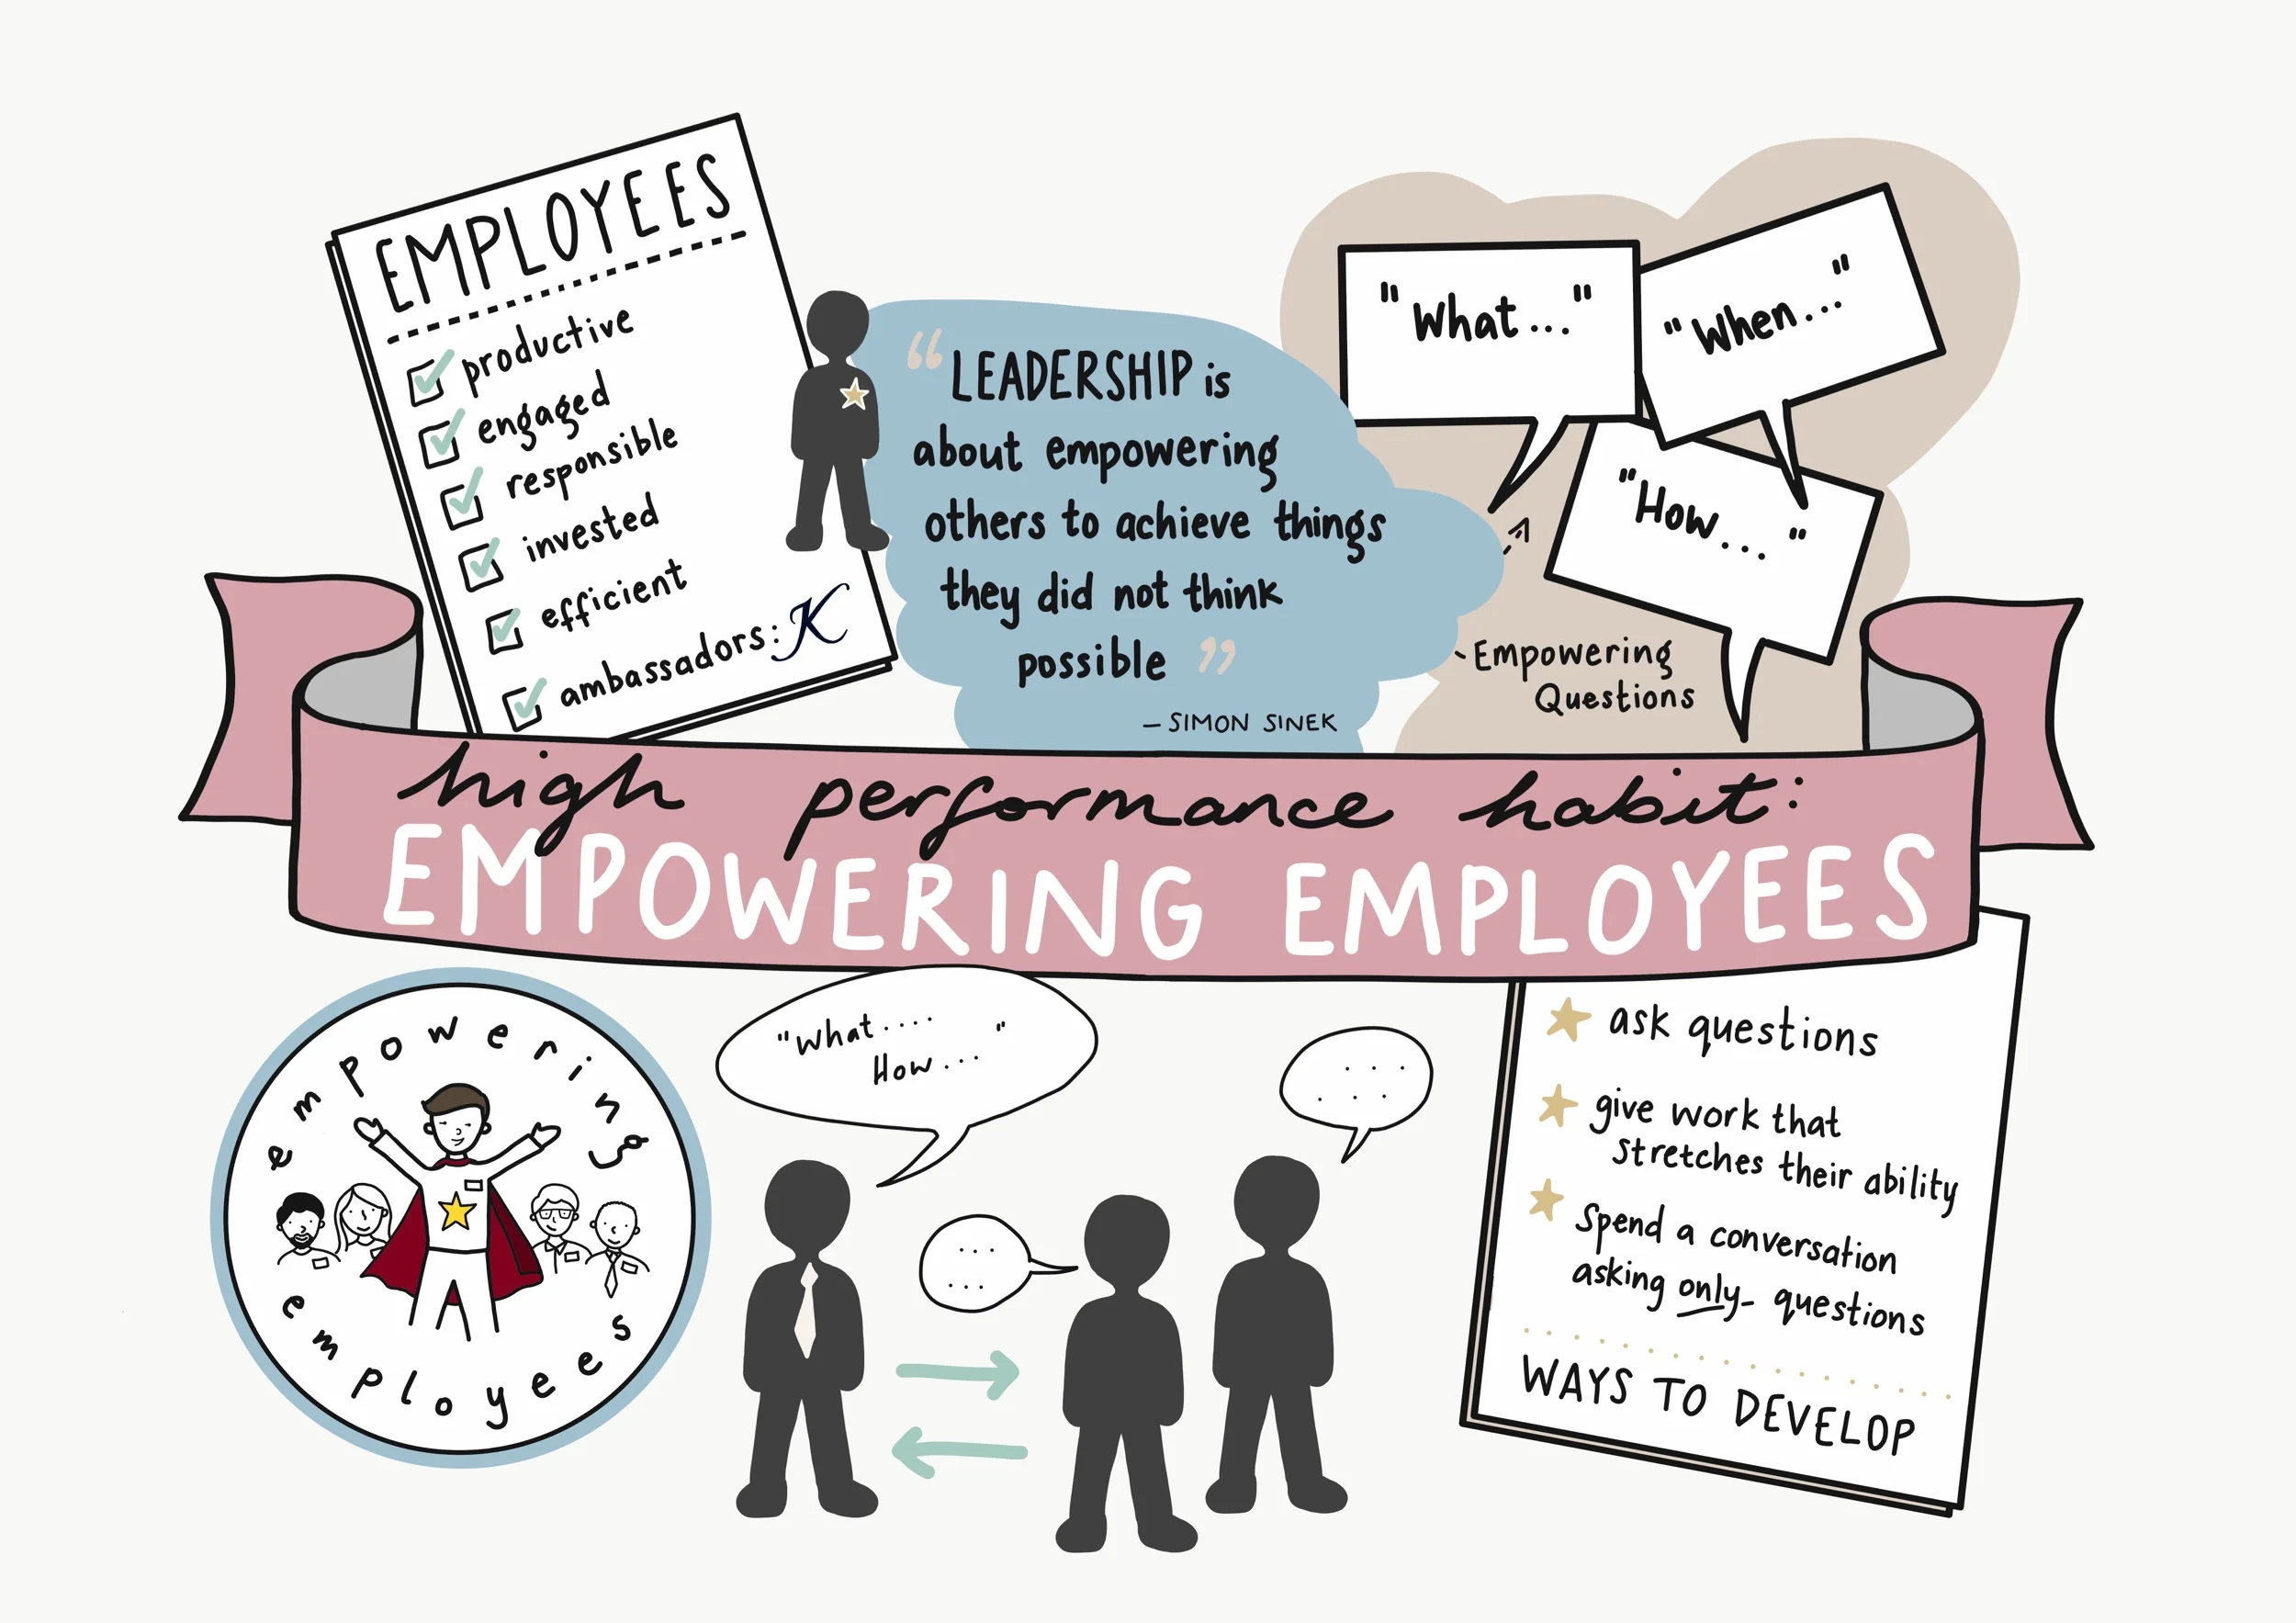 EMPLOYEES
productive
engaged
responsible
invested
efficient
ambassadors: K
“ LEADERSHIP is
about empowering
others to achieve things
they did not think
possible ”
— SIMON SINEK
"What..."
"When...."
"How... "
- Empowering
Questions
high performance habit:
EMPOWERING EMPLOYEES
empowering
employees
"What.... "
How...
... 
...
...
...
ask questions
give work that
stretches their ability
Spend a conversation
asking only questions
WAYS TO DEVELOP